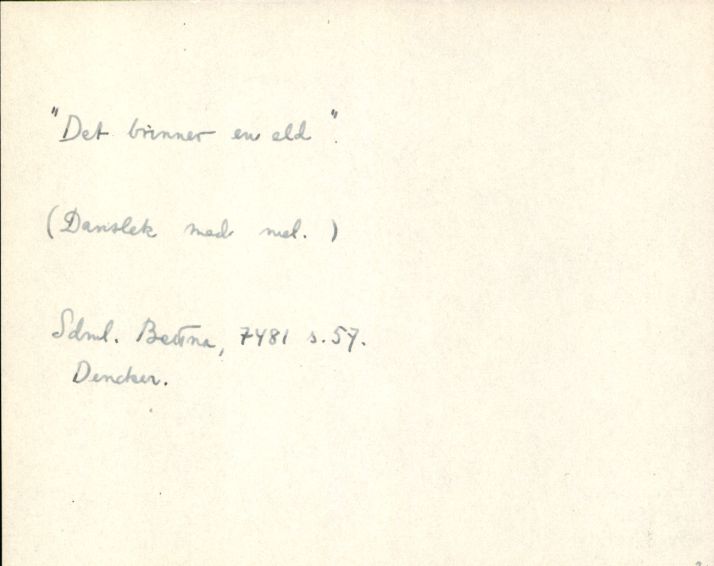 "Det brinner en eld".
(Danslek med mel.)
Sdml. Bettna, 7481 s. 57.
Dencker.